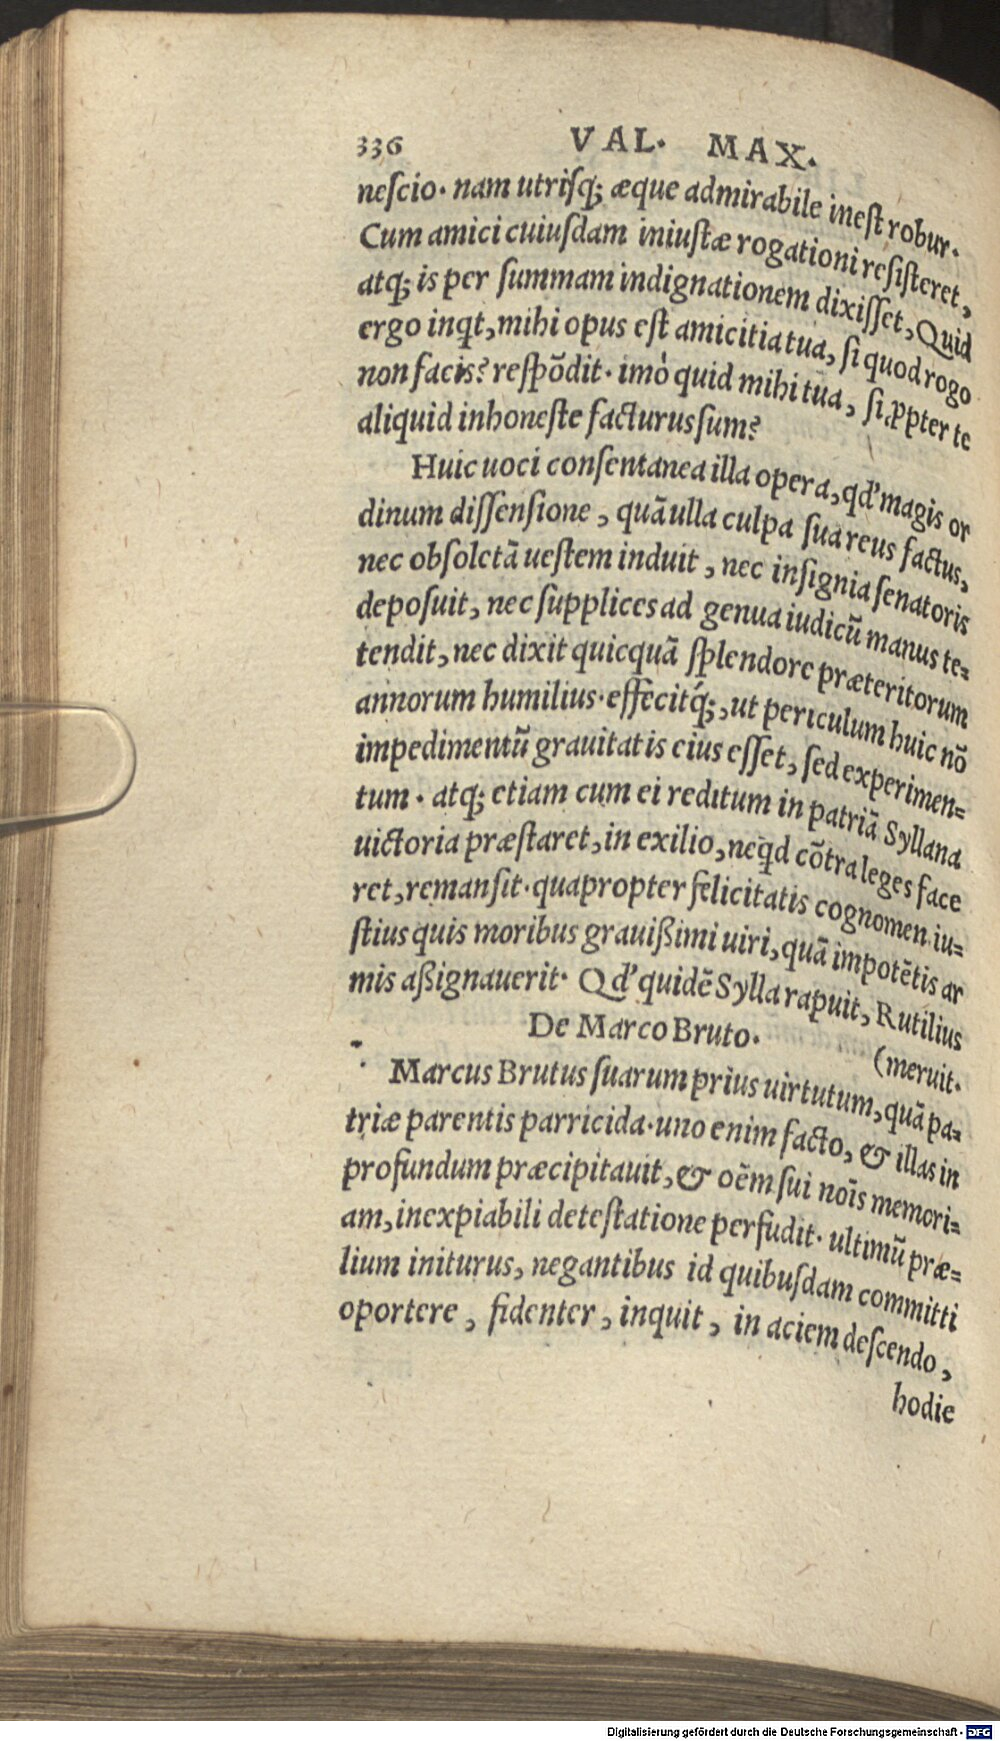 336 VAL. MAX.
neſcio. nam utriſq; æque admirabile ineſt robur.
Cum amici cuiuſdam iniuſtæ rogationi reſiſteret,
atq; is per ſummam indignationem dixiſſet, Quid
ergo inqt, mihi opus eſt amicitia tua, ſi quod rogo
non facis? reſpōdit. imò quid mihi tua, ſi ꝓpter te
aliquid inhoneſte facturus ſum?
Huic uoci conſentanea illa opera, qd' magis or
dinum diſſenſione, quā ulla culpa ſua reus factus,
nec obſoletā ueſtem induit, nec inſignia ſenatoris
depoſuit, nec ſupplices ad genua iudicū manus te=
tendit, nec dixit quicquā ſplendore præteritorum
annorum humilius. effecitq́;, ut periculum huic nō
impedimentū grauitatis eius eſſet, ſed experimen=
tum. atq; etiam cum ei reditum in patriā Syllana
uictoria præſtaret, in exilio, neq̄d cōtra leges face
ret, remanſit. quapropter felicitatis cognomen iu=
ſtius quis moribus grauißimi uiri, quā impotētis ar
mis aßignauerit. Qd' quidē Sylla rapuit, Rutilius
(meruit.
De Marco Bruto.
Marcus Brutus ſuarum prius uirtutum, quā pa=
triæ parentis parricida. uno enim facto, & illas in
profundum præcipitauit, & oēm ſui noīs memori=
am, inexpiabili deteſtatione perfudit. ultimū præ=
lium initurus, negantibus id quibuſdam committi
oportere, fidenter, inquit, in aciem deſcendo,
hodie
Digitalisierung gefördert durch die Deutsche Forschungsgemeinschaft - DFG